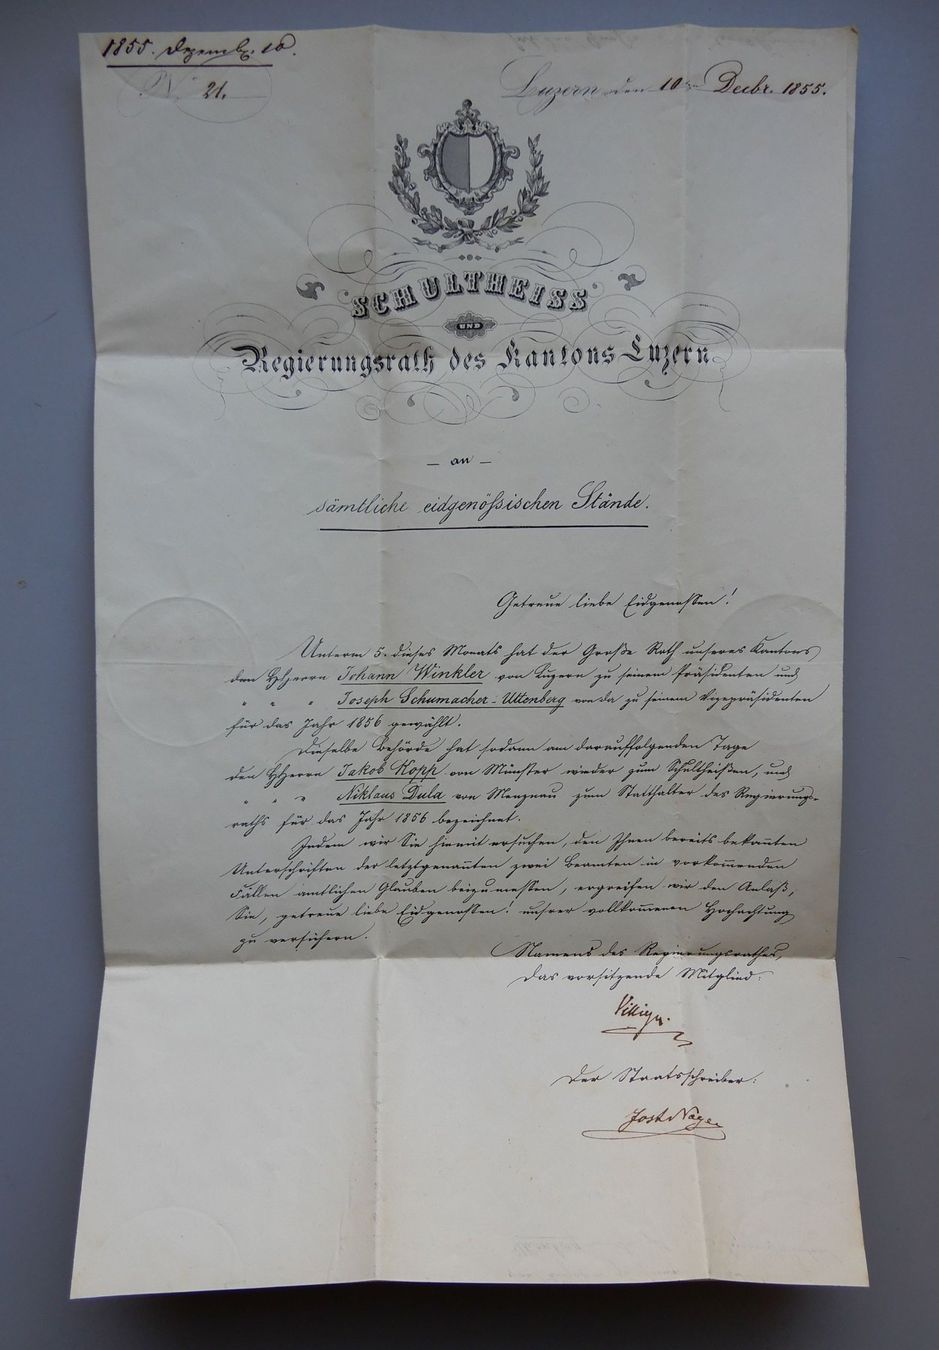 1855. Dezemb. 10.
Nº 21.
Luzern den 10 Decbr. 1855.
SCHULTHEISS
UND
Regierungsrath des Kantons Luzern
– an –
sämtliche eidgenößischen Stände.
Getreue liebe Eidgenossen!
Unterm 5. dieses Monats hat der Große Rath unseres Kantons
den HHerrn Johann Winkler von Luzern zu seinem Präsidenten und
" " " Joseph Schumacher-Uttenberg von da zu seinem Vizepräsidenten
für das Jahr 1856 gewählt.
Dieselbe Behörde hat sodann am darauffolgenden Tage
den HHerrn Jakob Kopp von Münster wieder zum Schultheißen, und
" " " Niklaus Dula von Menznau zum Statthalter des Regierungs-
raths für das Jahr 1856 bezeichnet.
Indem wir Sie hiemit ersuchen, den Ihnen bereits bekannten
Unterschriften der letztgenannten zwei Beamten in vorkommenden
Fällen amtlichen Glauben beizumessen, ergreifen wir den Anlaß,
Sie, getreue liebe Eidgenossen! unsrer vollkommenen Hochachtung
zu versichern.
Namens des Regierungsrathes,
Das vorsitzende Mitglied:
Villiger.
Der Staatsschreiber:
Jost Nager